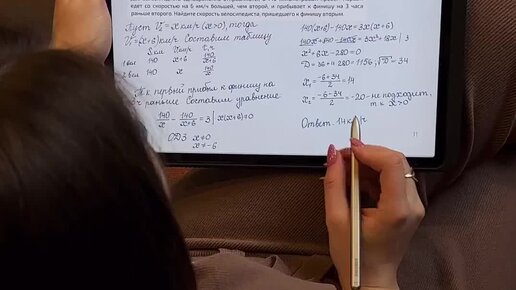 едет со скоростью на 6 км/ч большей, чем второй, и прибывает к финишу на 3 часа
раньше второго. Найдите скорость велосипедиста, пришедшего к финишу вторым.
Пусть V₂ = x км/ч (x>0), тогда
V₁ = (x+6) км/ч. Составим таблицу
S, км V км/ч t, ч
1 вел 140 x+6 140/(x+6)
2 вел 140 x 140/x
Т.к первый прибыл к финишу на
раньше Составим уравнение:
140/x − 140/(x+6) = 3 | x(x+6)≠0
ОДЗ x≠0
x≠-6
140(x+6)-140x=3x(x+6)
140x+840-140x=3x²+18x | :3
x²+6x-280=0
D=36+1120=1156, √D=34
x₁ = (-6+34)/2 = 14
x₂ = (-6-34)/2 = -20 - не подходит,
т к x>0
Ответ: 14 км/ч
11